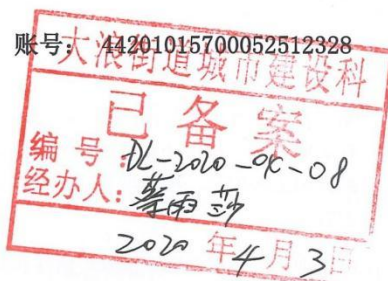 账号：44201015700052512328
大浪街道城市建设科
已备案
编号：DL-2020-0K-08
经办人：蔡雨莎
2020年4月3日